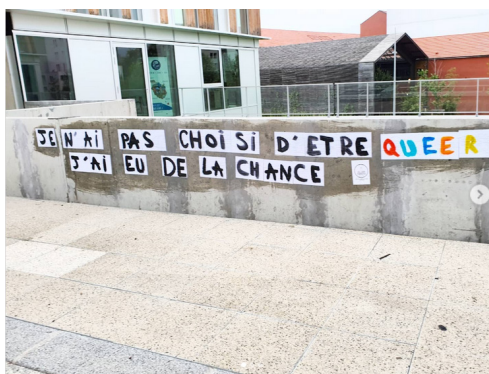 JE N'AI PAS CHOISI D'ETRE QUEER
J'AI EU DE LA CHANCE